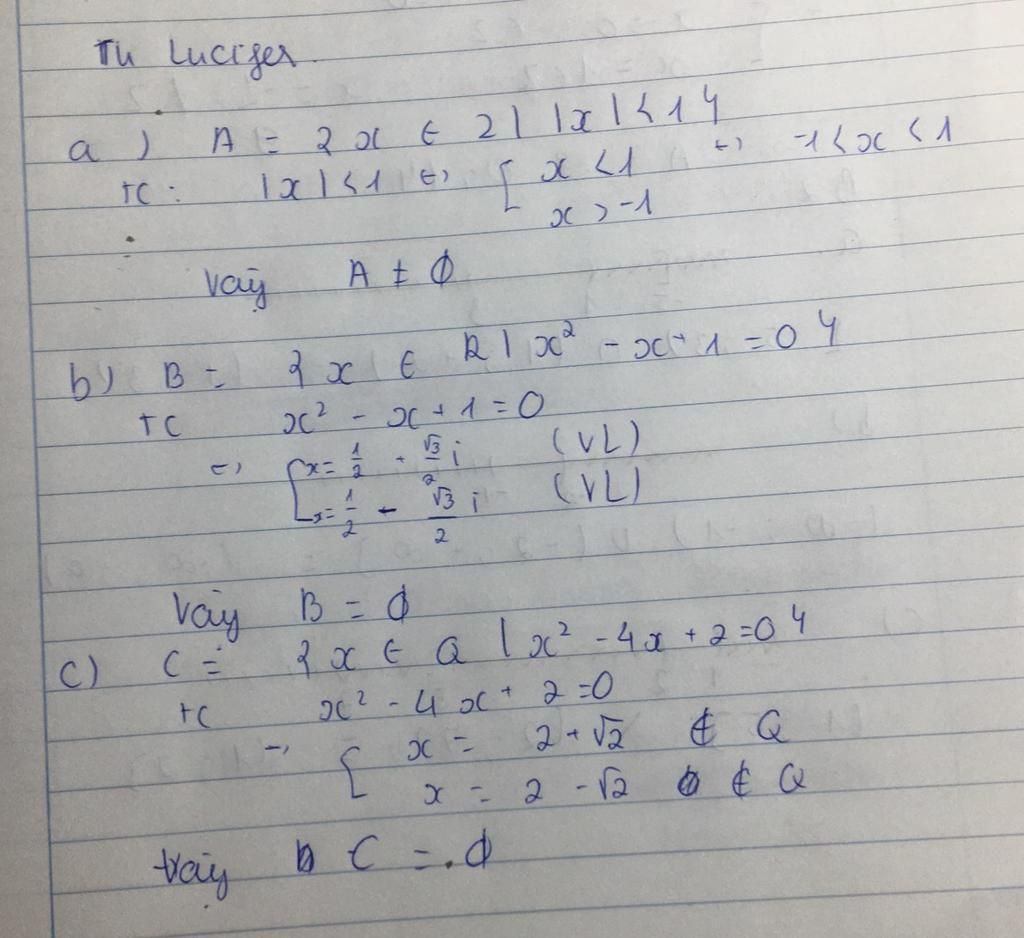 Tu Lucifer.
a) A = {x ∈ Z | |x| < 1}
TC: |x| < 1 ⇔ [ x < 1 ⇔ -1 < x < 1
x > -1
Vậy A ≠ ∅
b) B = {x ∈ R | x² - x + 1 = 0}
TC x² - x + 1 = 0
⇔ [ x = 1/2 + √3/2 i (VL)
x = 1/2 - √3/2 i (VL)
Vậy B = ∅
c) C = {x ∈ Q | x² - 4x + 2 = 0}
TC x² - 4x + 2 = 0
⇔ [ x = 2 + √2 ∉ Q
x = 2 - √2 ∉ Q
Vậy C = ∅